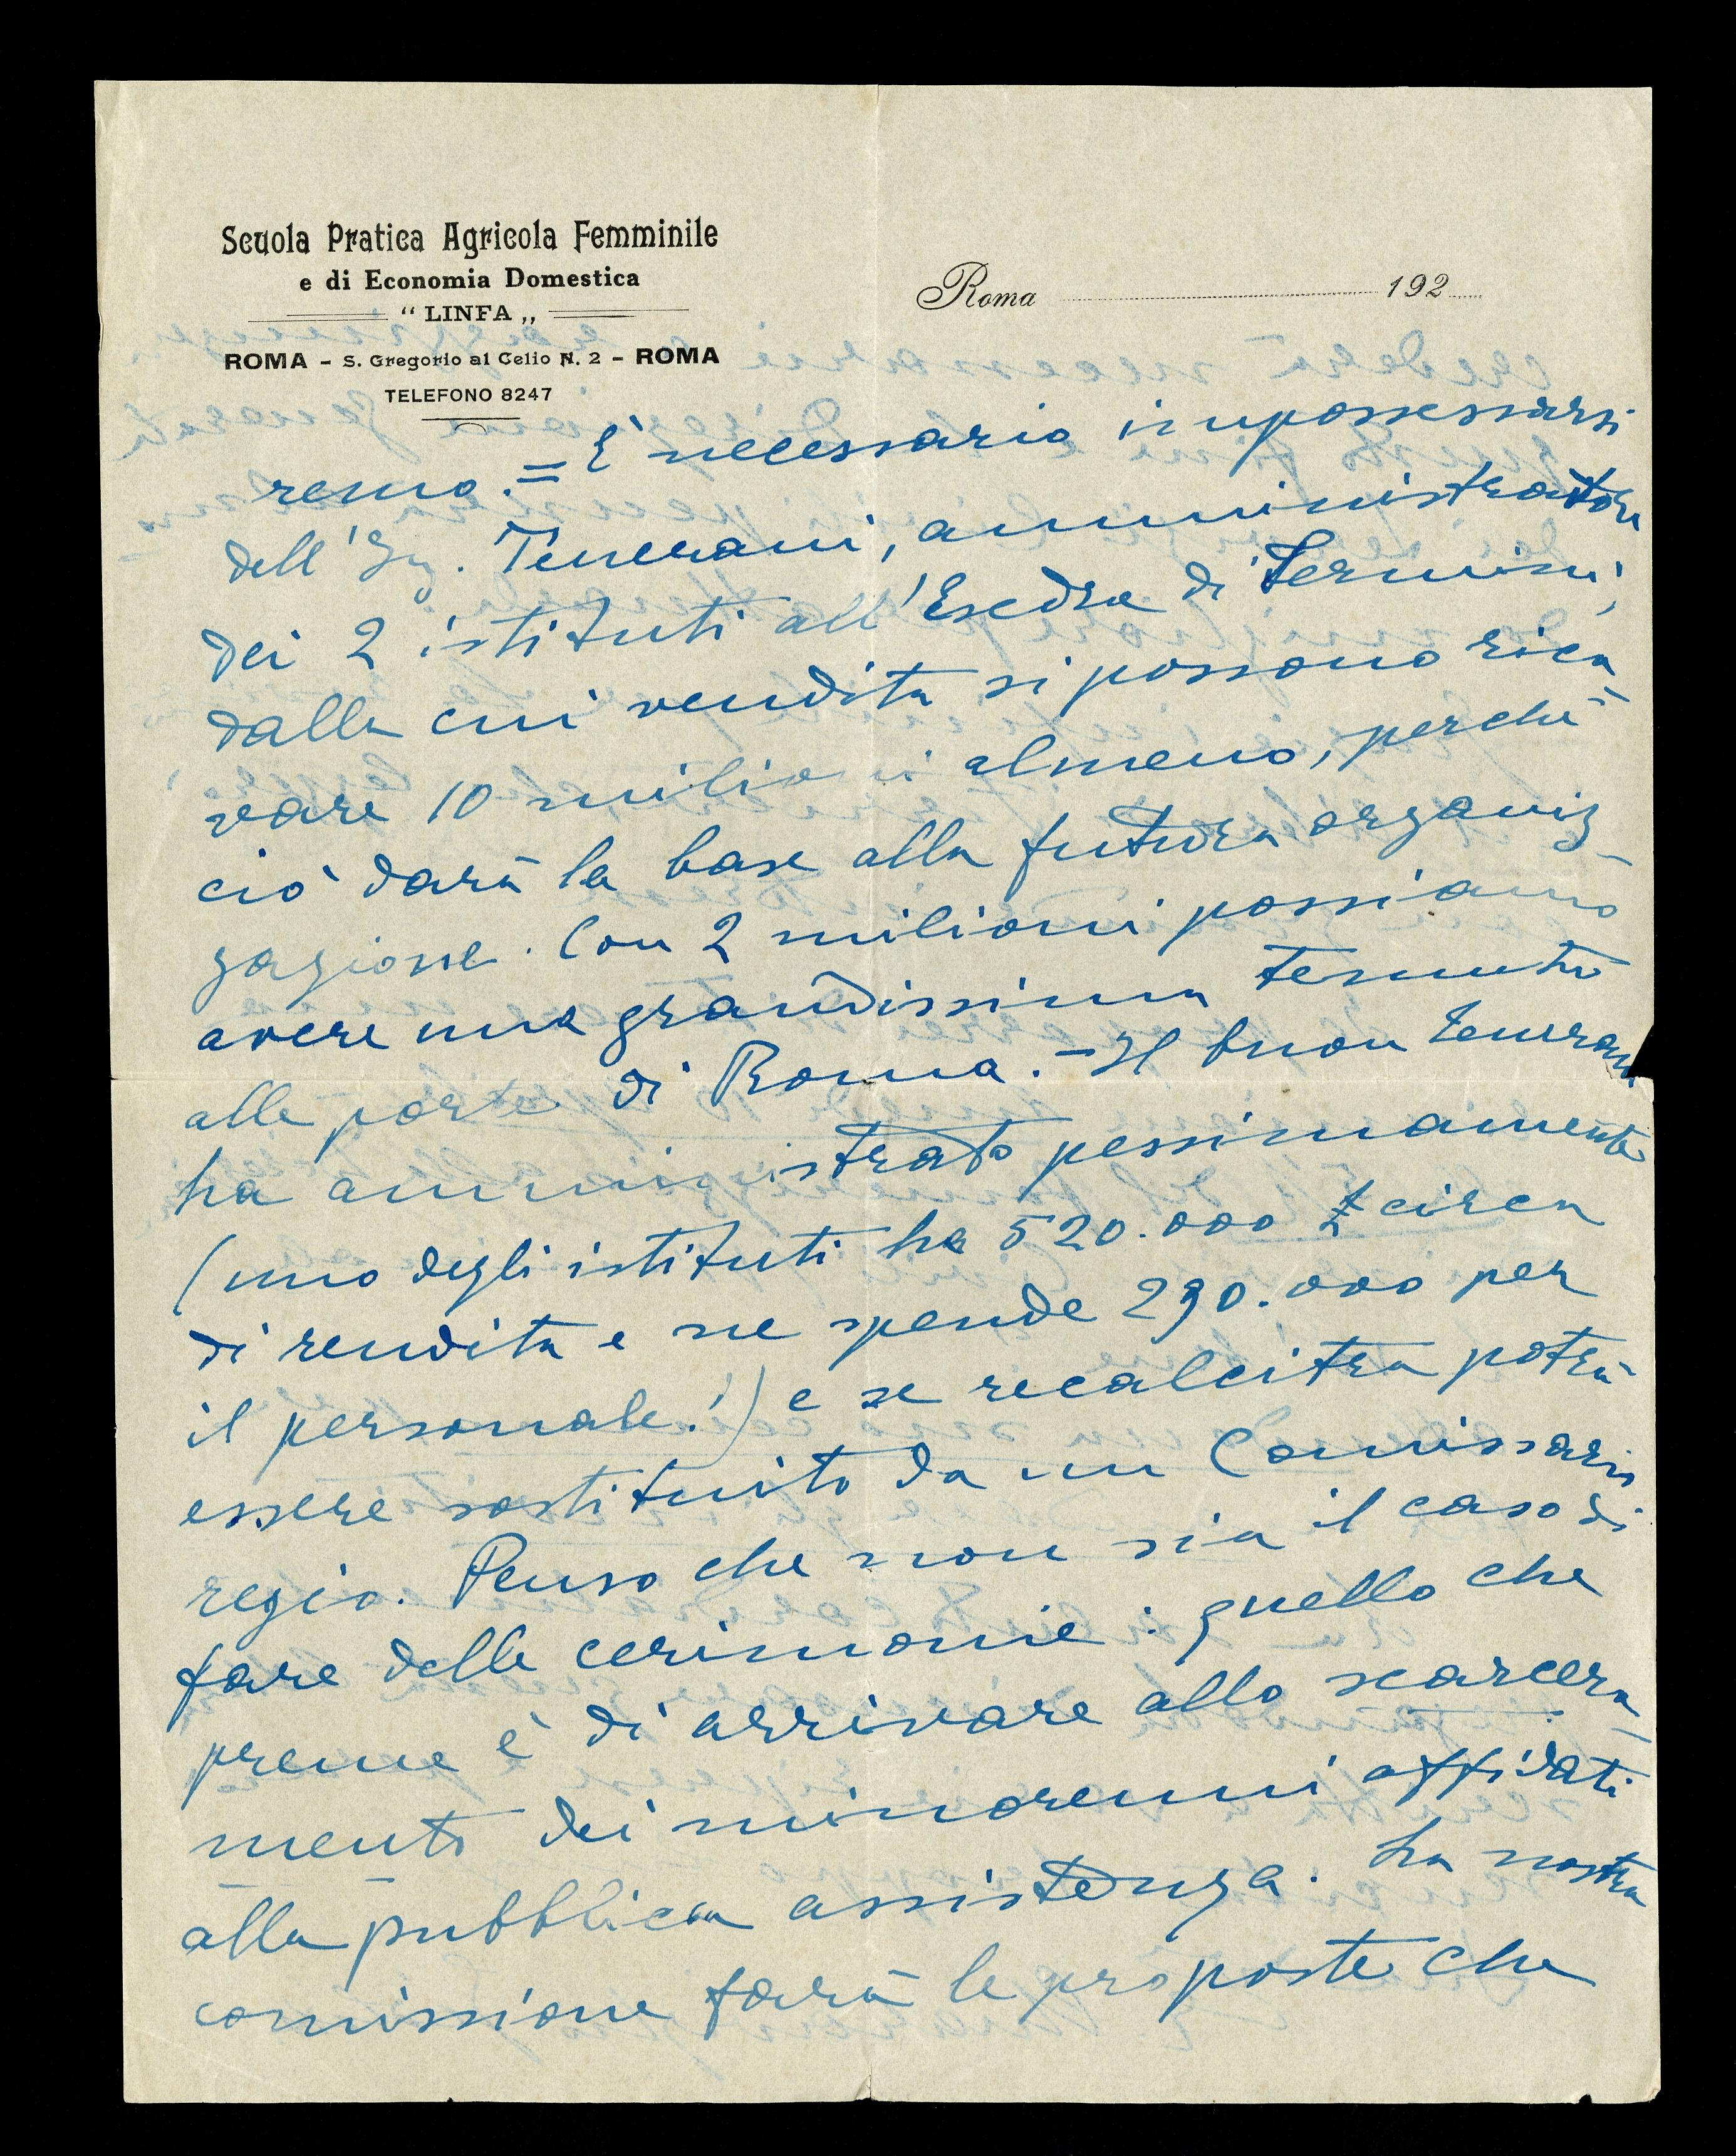 Scuola Pratica Agricola Femminile
e di Economia Domestica
“ LINFA „
ROMA - S. Gregorio al Celio N. 2 - ROMA
TELEFONO 8247
Roma 192
remo. = È necessario impossessarsi
dell'Ing. Tenerani, amministratore
dei 2 istituti all'Esedra di Termini,
dalla cui vendita si possono rica
vare 10 milioni almeno, perchè
ciò darà la base alla futura organiz
zazione. Con 2 milioni possiamo
avere una grandissima tenuta
alle porte di Roma. - Il buon Tenerani
ha amministrato pessimamente
(uno degli istituti ha 520.000 £ circa
di rendita e ne spende 290.000 per
il personale!) e se recalcitra potrà
essere sostituito da un Comissario
regio. Penso che non sia il caso di
fare delle cerimonie: quello che
preme è di arrivare allo scarcera
mento dei minorenni affidati
alla pubblica assistenza. La nostra
comissione farà le proposte che